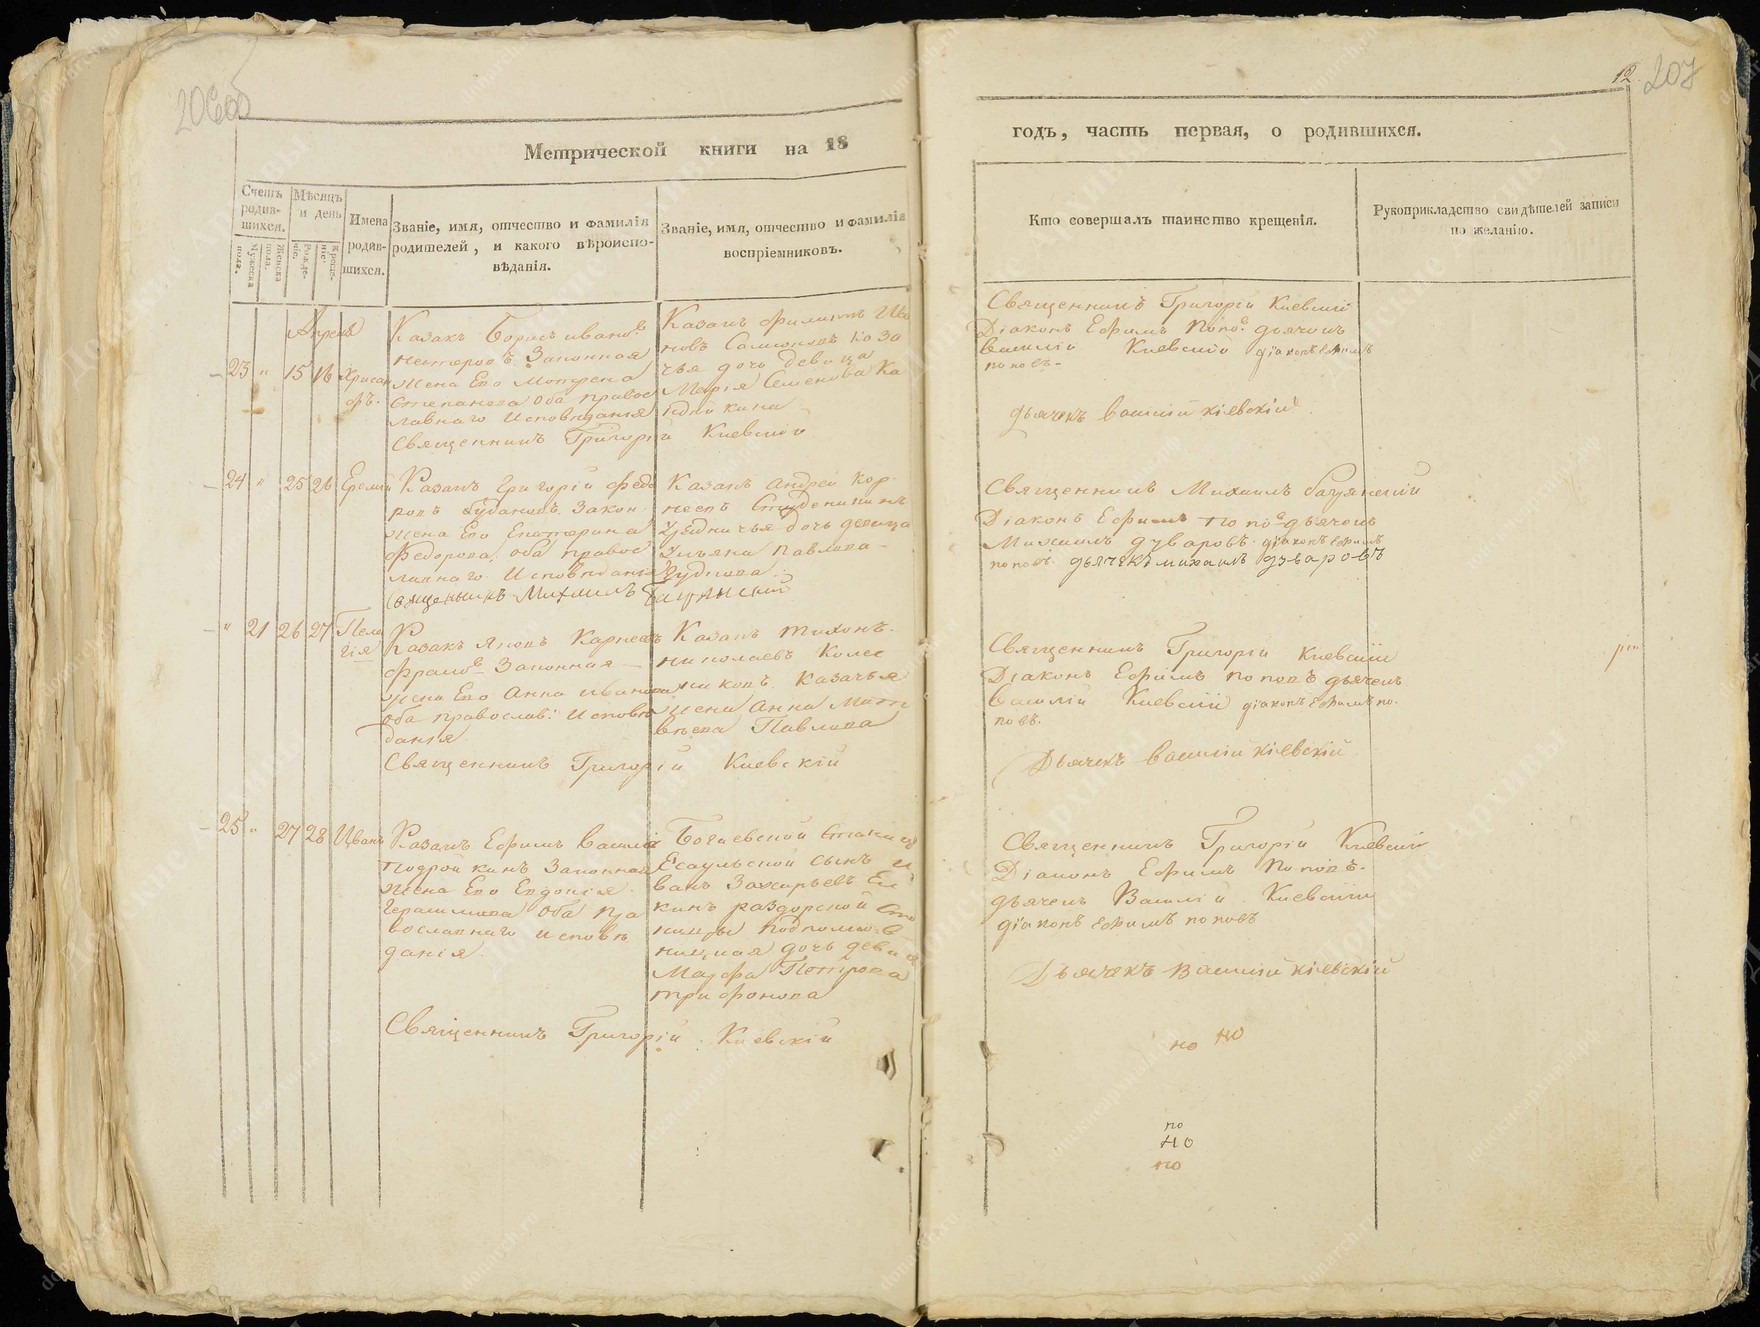 12.
207
Метрической книги на 18
годъ, часть первая, о родившихся.
Счетъ родив-
шихся.
Мужеска пола.
Женска пола.
Мѣсяцъ
и день
Рожде-
нія.
Креще-
нія.
Имена
родив-
шихся.
Званіе, имя, отчество и фамилія
родителей, и какого вѣроиспо-
вѣданія.
Званіе, имя, отчество и фамилія
воспріемниковъ.
Кто совершалъ таинство крещенія.
Рукоприкладство свидѣтелей записи
по желанію.
Апреля
23 " 15 16 Хрисан
фъ.
Казакъ Борисъ Ивановъ
Законная
жена Его Матрена
Степанова оба правос
лавнаго Исповѣданія
Священникъ Григорій Киевскій
Казакъ Филиппъ Ива
новъ Каза
чья дочь девица
Марія Семенова Ка
Священникъ Григорій Киевскій
Діаконъ Ефимъ Попо. дьячекъ
Василій Киевскій діаконъ Ефимъ
поповъ
дьячекъ Василій Кіевскій
24 " 25 26 Еремѣй
Казакъ Григорій Федо
ровъ Закон
жена Его Екатерина
Федорова, оба правос
лавнаго Исповѣданія
Священникъ Михаилъ Бацянскій
Казакъ Андрей Кор
неевъ Студеникинъ
дочь девица
Ульяна Павлова
Чуднова
Священникъ Михаилъ Бацянскій
Діаконъ Ефимъ Попо. дьячекъ
Михаилъ Дуваровъ. діаконъ Ефимъ
поповъ. дьячекъ михаилъ Дуваровъ
" 21 26 27 Пела
гія
Казакъ Яковъ Карнеевъ
Законная
жена Его Анна Иванова
оба православ: Исповѣ
данія
Священникъ Григорій Киевскій
Казакъ Тихонъ
Николаевъ Колес
никовъ. Казачья
жена Анна Мат
вѣева Павлова
Священникъ Григорій Киевскій
Діаконъ Ефимъ Поповъ дьячекъ
Василій Киевскій діаконъ Ефимъ по
повъ.
Дьячекъ Василій Кіевскій
25 " 27 28 Иванъ
Казакъ Ефимъ Васил
Подройкинъ Законная
жена Его Евдокія
Герасимова Оба пра
вославнаго исповѣ
данія.
Священникъ Григорій Киевскій
Богаевской Станицы
Есаульской сынъ И
ванъ Захарьевъ Ел
кинъ раздорской Ста
ницы Подполков
ницкая дочь девица
Марфа Петрова
Трифонова
Священникъ Григорій Киевскій
Діаконъ Ефимъ Поповъ.
дьячекъ Василій Киевскій
діаконъ Ефимъ поповъ
Дьячекъ Василій Кіевскій
но но
по
но
по